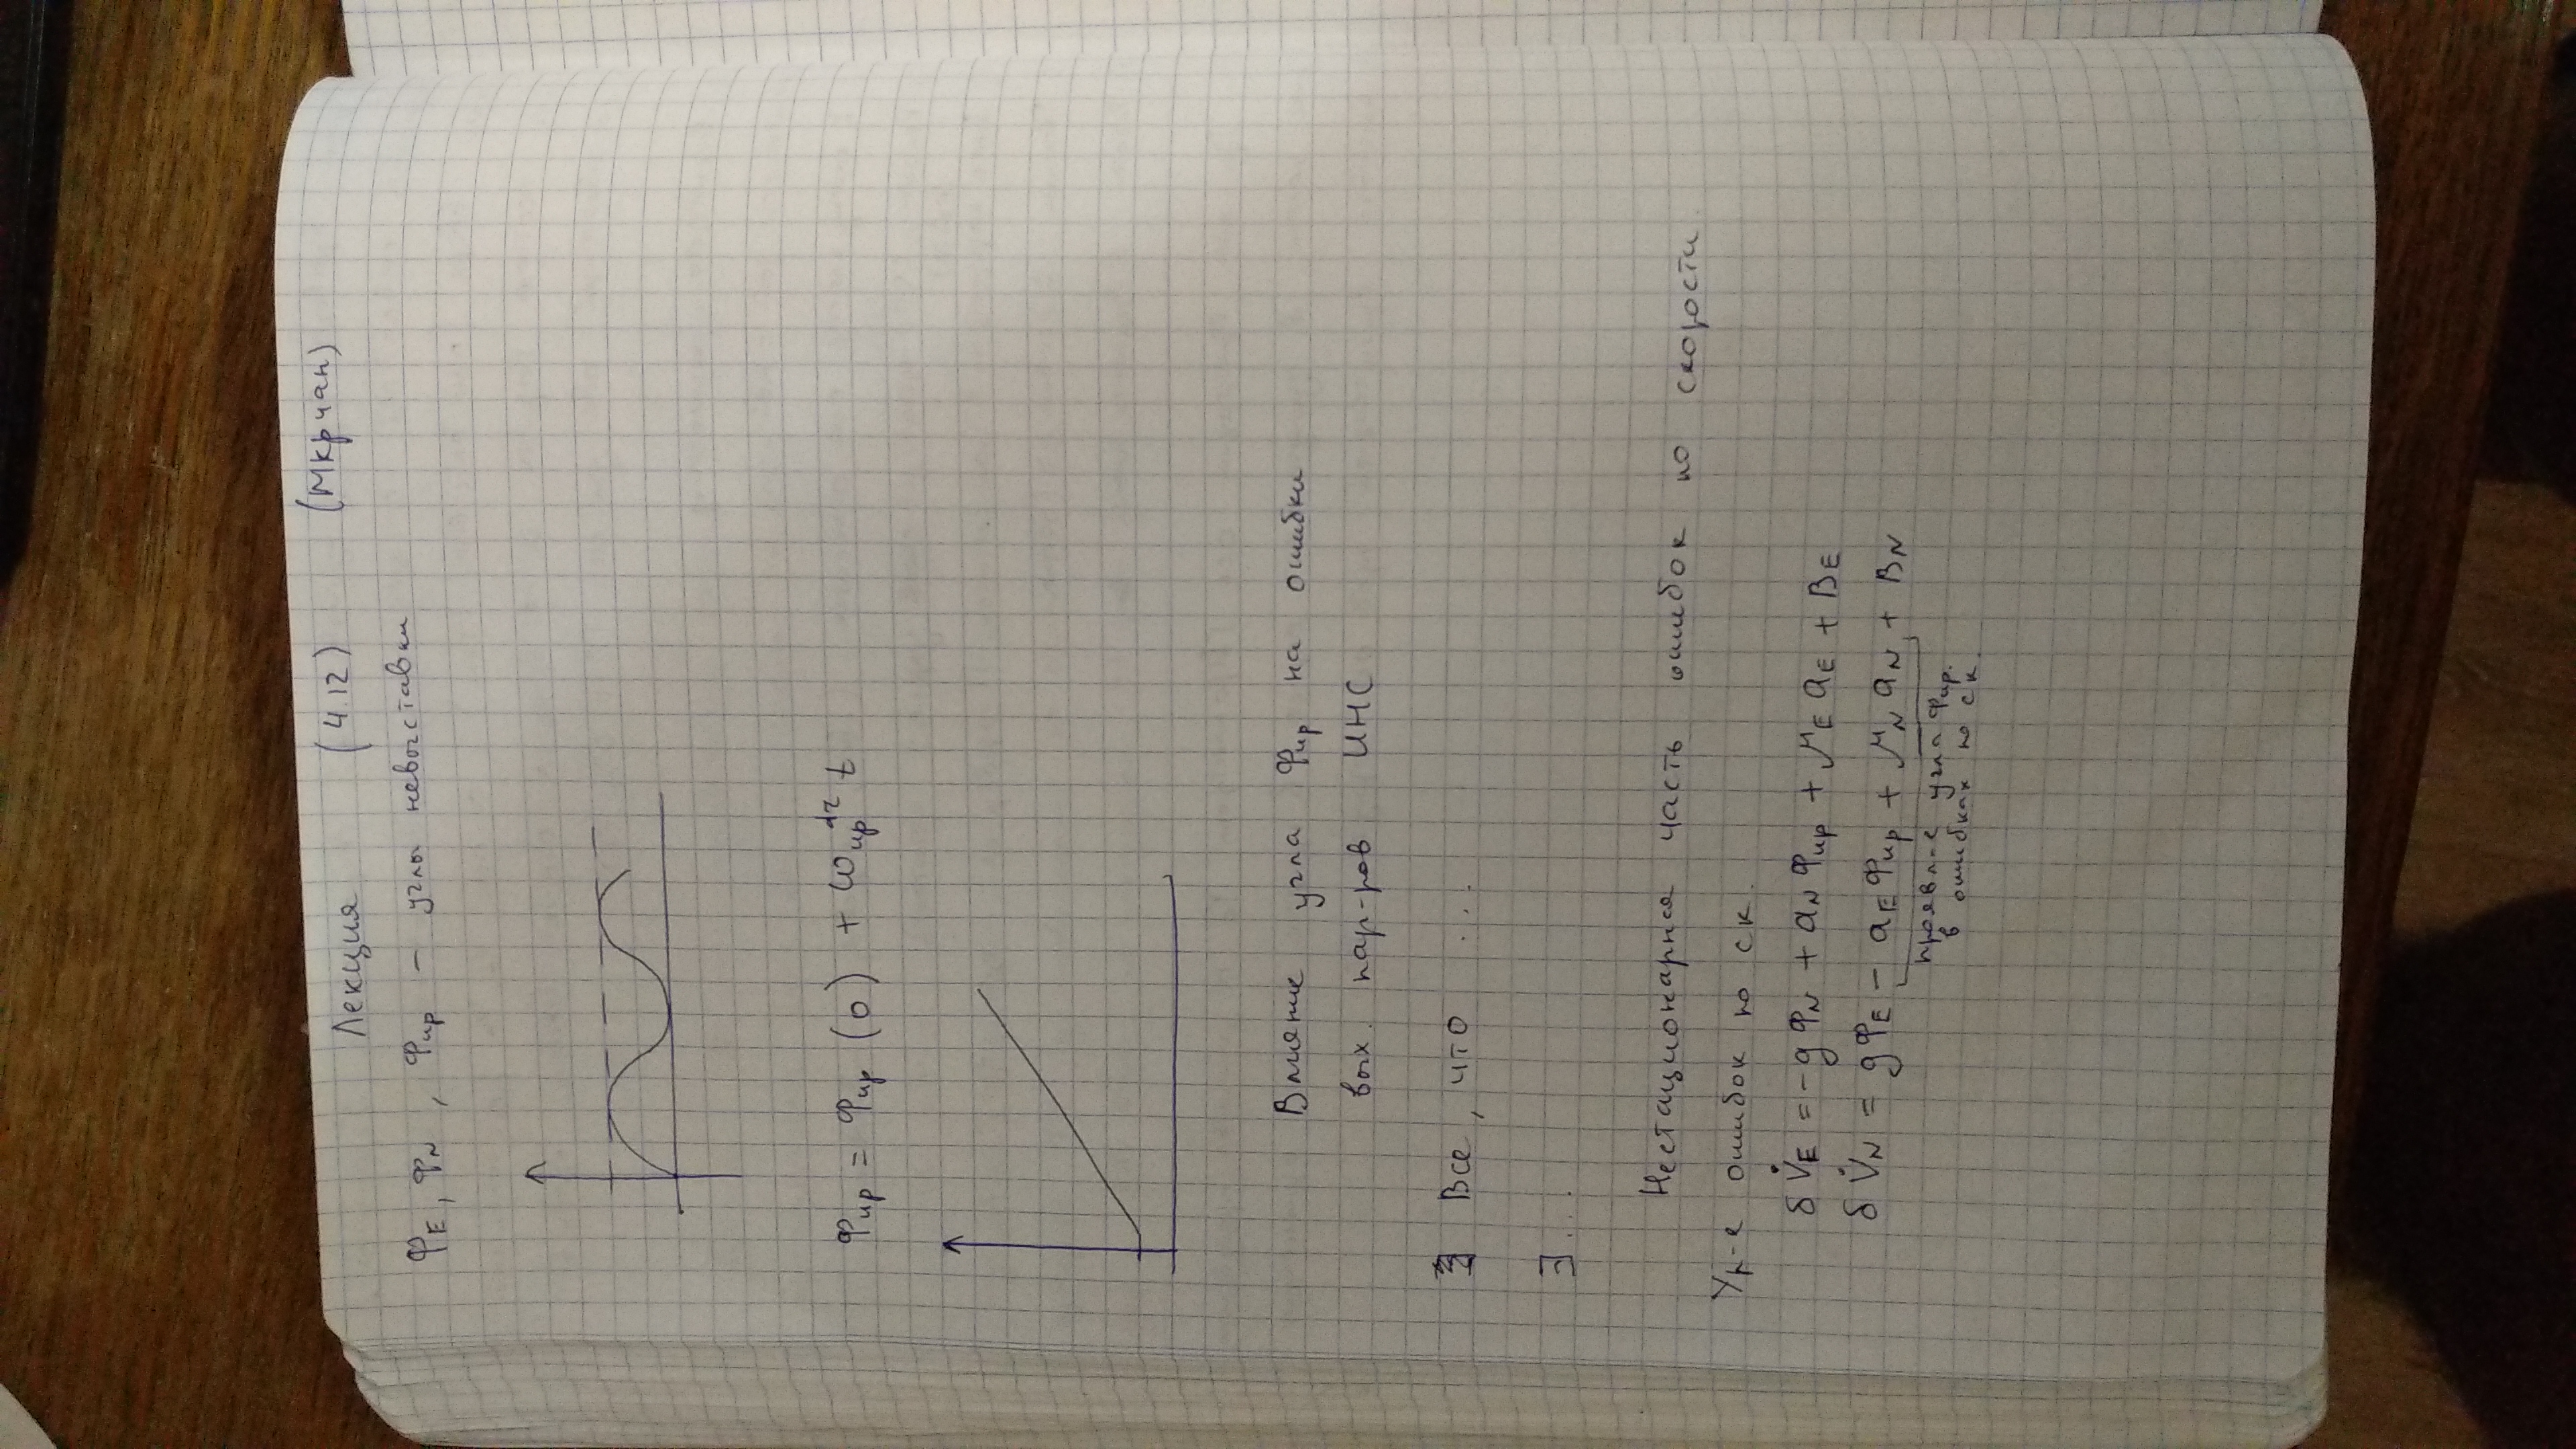 Лекция (4.12) (Мкрчан)
Φ_E, Φ_N, Φ_ир – углы невыставки
Φ_ир = Φ_ир (0) + ω_ир^др t
Влияние угла Φ_ир на ошибки
вых. пар-ров ИНС
Все, что ....
] ...
Нестационарная часть ошибок по скорости
Ур-е ошибок по ск.
δV̇_E = -gΦ_N + a_N Φ_ир + μ_E a_E + B_E
δV̇_N = gΦ_E - a_E Φ_ир + μ_N a_N + B_N
проявл-е угла Φ_ир.
в ошибках по ск.